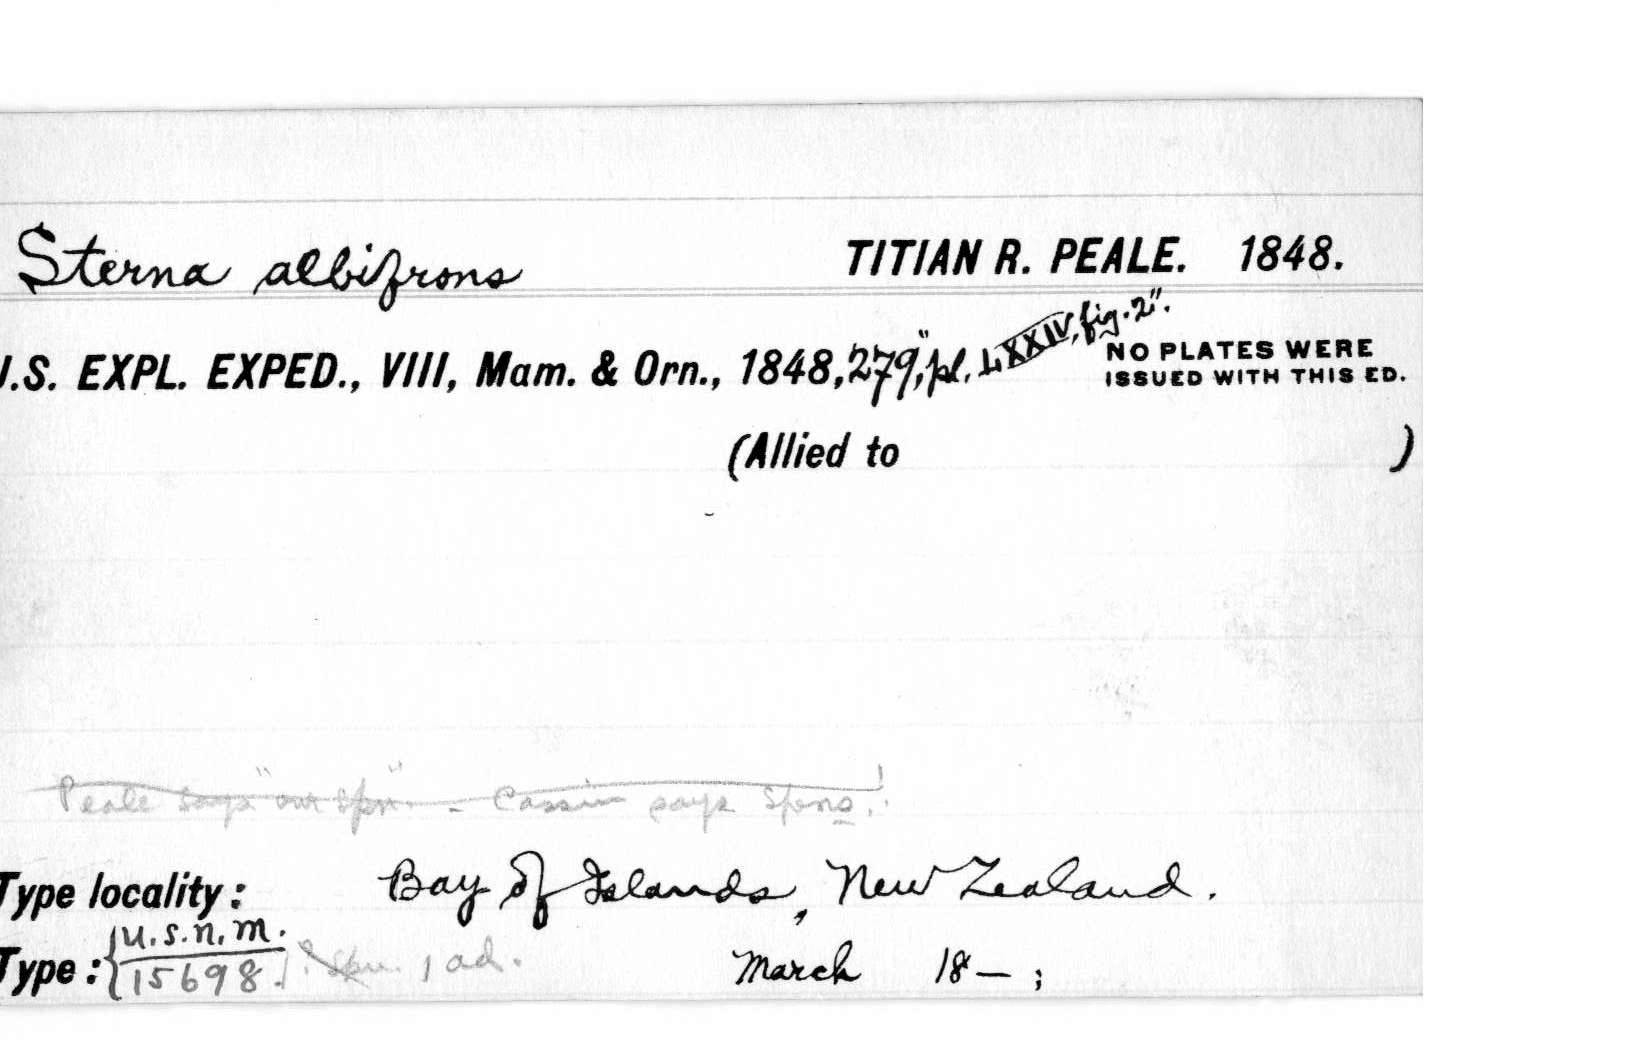 Sterna albifrons TITIAN R. PEALE. 1848.
U.S. EXPL. EXPED., VIII, Mam. & Orn., 1848, 279, "pl. LXXIV, fig. 2". NO PLATES WERE
ISSUED WITH THIS ED.
(Allied to )
Peale says "our spn". - Cassin says spens.!
Type locality: Bay of Islands, New Zealand.
Type: {U.S.N.M.
15698.} ? Spn. 1 ad. March 18—;